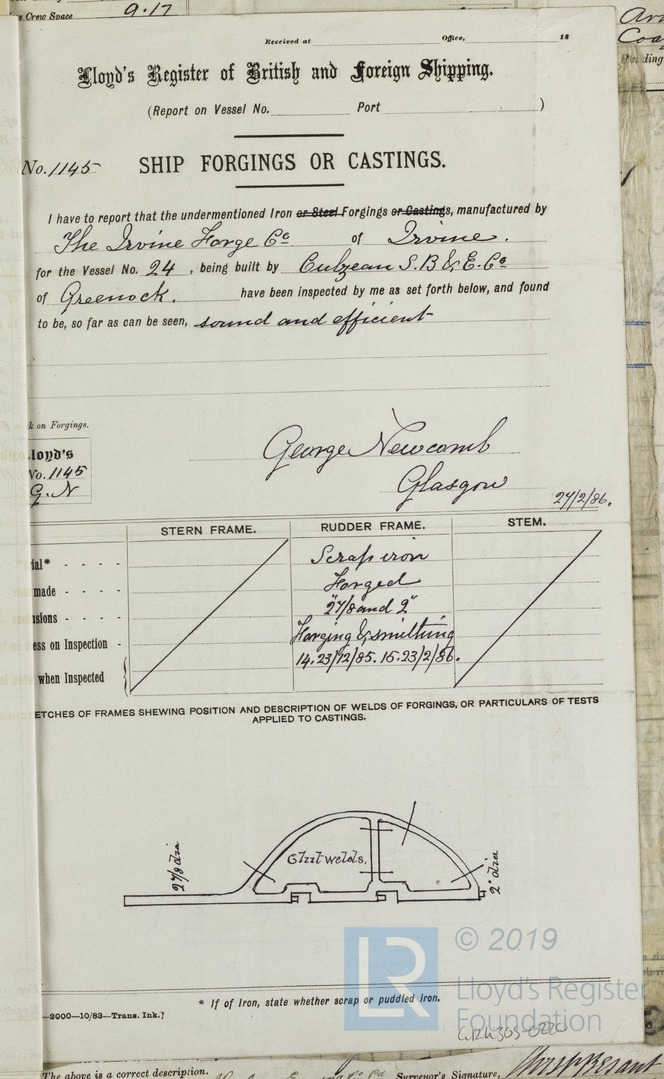 e Crew Space 9.17
Received at Office, 18
Lloyd's Register of British and Foreign Shipping.
(Report on Vessel No. Port )
No. 1145 SHIP FORGINGS OR CASTINGS.
I have to report that the undermentioned Iron or Steel Forgings or Castings, manufactured by
The Irvine Forge Co of Irvine.
for the Vessel No. 24, being built by Culzean S.B & E. Co
of Greenock. have been inspected by me as set forth below, and found
to be, so far as can be seen, sound and efficient
k on Forgings.
loyd's
No. 1145
G.N
George Newcomb
Glasgow
27/2/86.
STERN FRAME. RUDDER FRAME. STEM.
ial* - - - - Scrap iron
made - - - - Forged
nsions - - - - 2 7/8 and 2"
ess on Inspection - Forging & smithing
when Inspected 14.23/12/85. 15.23/2/86.
ETCHES OF FRAMES SHEWING POSITION AND DESCRIPTION OF WELDS OF FORGINGS, OR PARTICULARS OF TESTS
APPLIED TO CASTINGS.
2 7/8 dia
Glut welds.
2" dia
* If of Iron, state whether scrap or puddled iron.
—2000—10/83—Trans. Ink.]
LR
© 2019
Lloyd's Register
Foundation
The above is a correct description.
Surveyor's Signature,